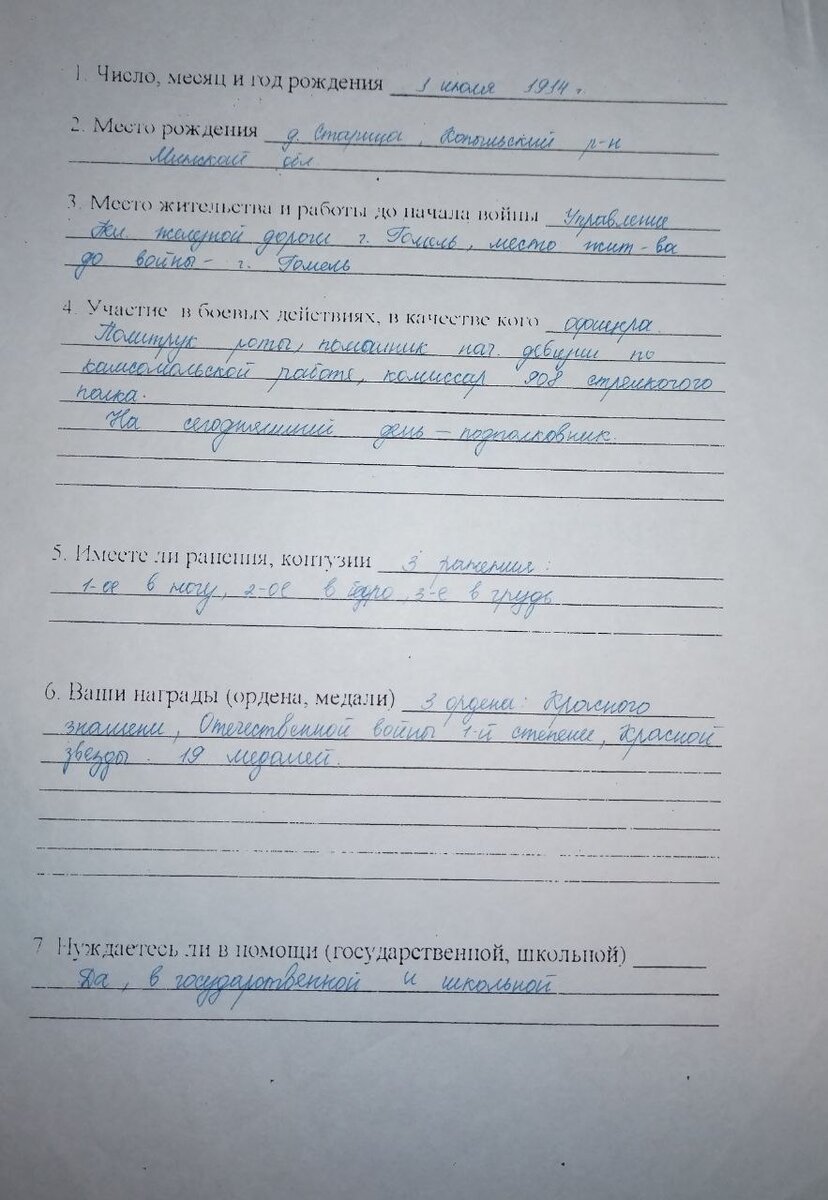 1. Число, месяц и год рождения 1 июля 1914 г.
2. Место рождения д. Старица, Копыльский р-н
Минской обл.
3. Место жительства и работы до начала войны Управление
железной дороги г. Гомель, место жит-ва
до войны - г. Гомель
4. Участие в боевых действиях, в качестве кого офицера.
Политрук роты, помощник нач. дивизии по
комсомольской работе, комиссар 908 стрелкового
полка.
На сегодняшний день – подполковник.
5. Имеете ли ранения, контузии 3 ранения:
1-ое в ногу, 2-ое в бедро, 3-е в грудь
6. Ваши награды (ордена, медали) 3 ордена: Красного
знамени, Отечественной войны 1-й степени, Красной
звезды. 19 медалей.
7. Нуждаетесь ли в помощи (государственной, школьной)
Да, в государственной и школьной